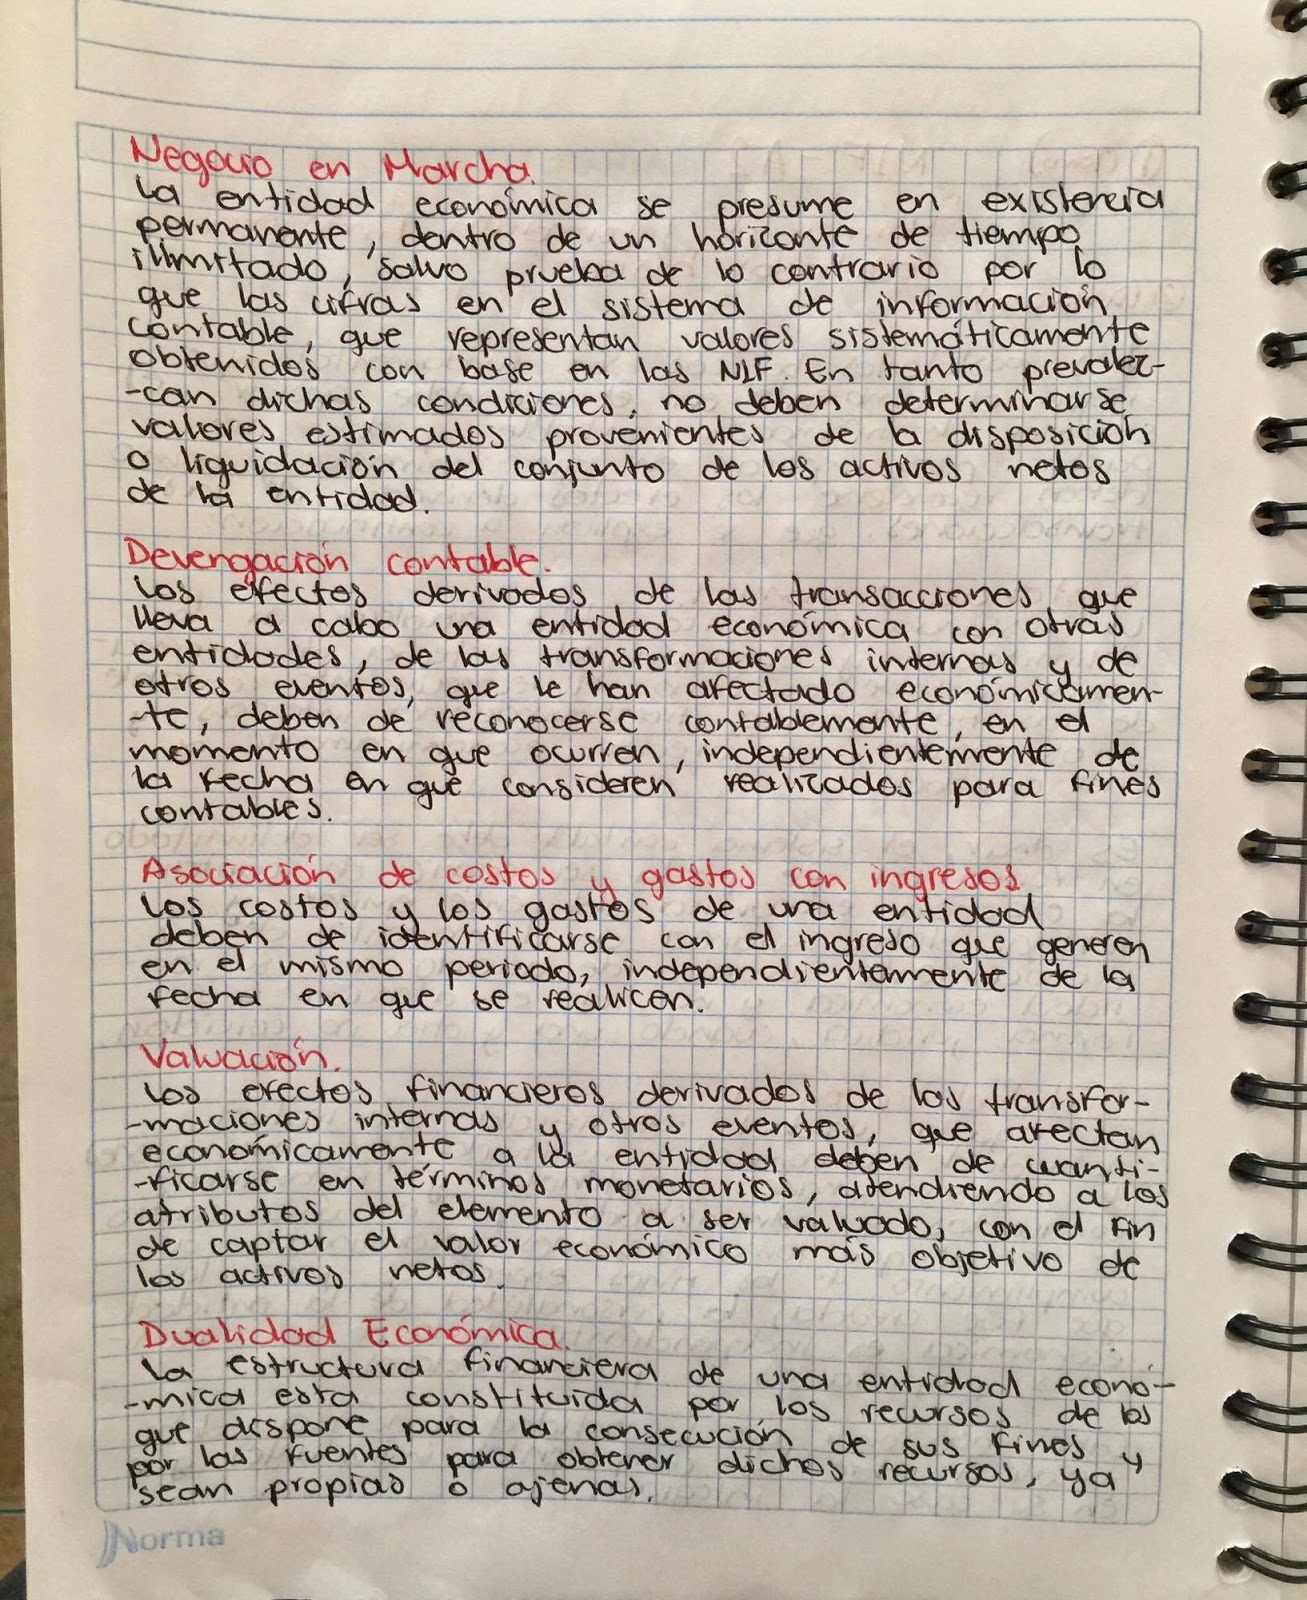 Negocio en Marcha.
La entidad económica se presume en existencia
permanente, dentro de un horizonte de tiempo
ilimitado, salvo prueba de lo contrario por lo
que las cifras en el sistema de información
contable, que representan valores sistemáticamente
obtenidos con base en las NIF. En tanto prevalez-
-can dichas condiciones, no deben determinarse
valores estimados provenientes de la disposición
o liquidación del conjunto de los activos netos
de la entidad.
Devengación contable.
Los efectos derivados de las transacciones que
lleva a cabo una entidad económica con otras
entidades, de las transformaciones internas y de
otros eventos, que le han afectado económicamen-
-te, deben de reconocerse contablemente, en el
momento en que ocurren, independientemente de
la fecha en que consideren realizados para fines
contables.
Asociación de costos y gastos con ingresos
Los costos y los gastos de una entidad
deben de identificarse con el ingreso que generen
en el mismo periodo, independientemente de la
fecha en que se realicen.
Valuación.
Los efectos financieros derivados de las transfor-
-maciones internas y otros eventos, que afectan
económicamente a la entidad deben de cuanti-
-ficarse en términos monetarios, atendiendo a los
atributos del elemento a ser valuado, con el fin
de captar el valor económico más objetivo de
los activos netos.
Dualidad Económica.
La estructura financiera de una entidad econó-
-mica esta constituida por los recursos de los
que dispone para la consecución de sus fines y
por las fuentes para obtener dichos recursos, ya
sean propias o ajenas.
Norma